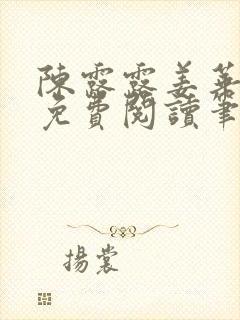 陳露露姜萊
免費閱讀筆
揚裳